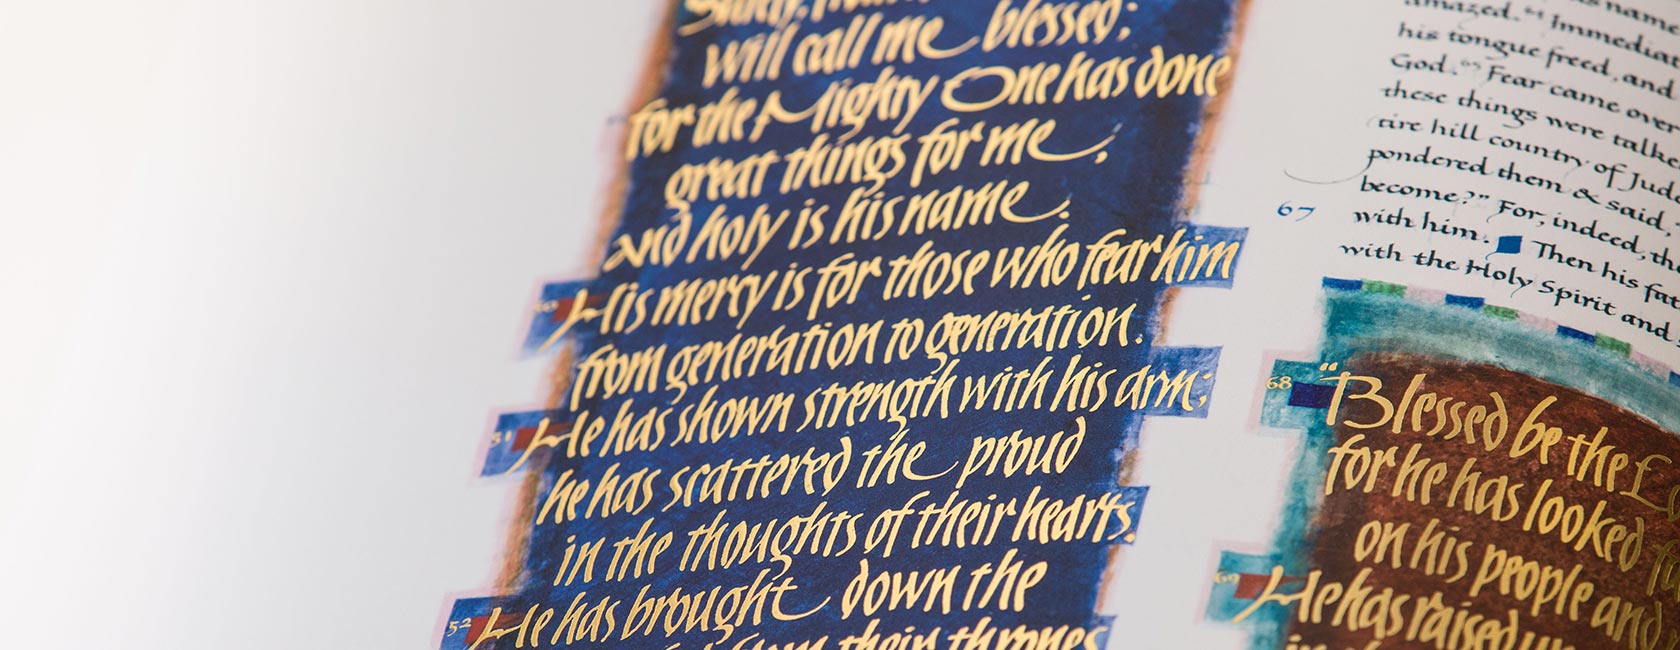 will call me blessed;
for the Mighty One has done
great things for me,
and holy is his name.
50 His mercy is for those who fear him
from generation to generation.
51 He has shown strength with his arm;
he has scattered the proud
in the thoughts of their hearts.
52 He has brought down the
from their thrones
his name
amazed. 64 Immediat
his tongue freed, and
God. 65 Fear came over
these things were talke
tire hill country of Jude
pondered them & said,
become?” For, indeed, the
67 with him. Then his fat
with the Holy Spirit and
68 “Blessed be the Lo
for he has looked fa
on his people and
69 He has raised up